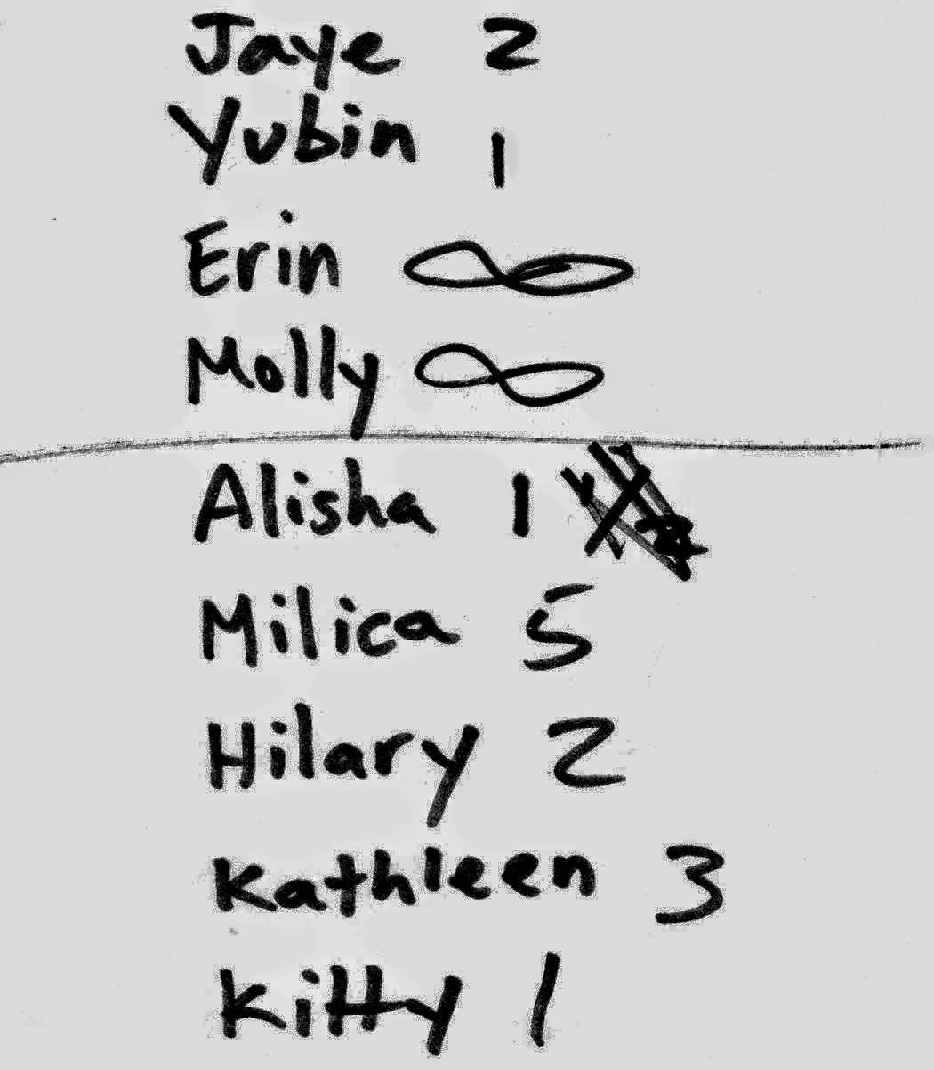 Jaye 2
Yubin 1
Erin ∞
Molly ∞
Alisha 1
Milica 5
Hilary 2
Kathleen 3
Kitty 1